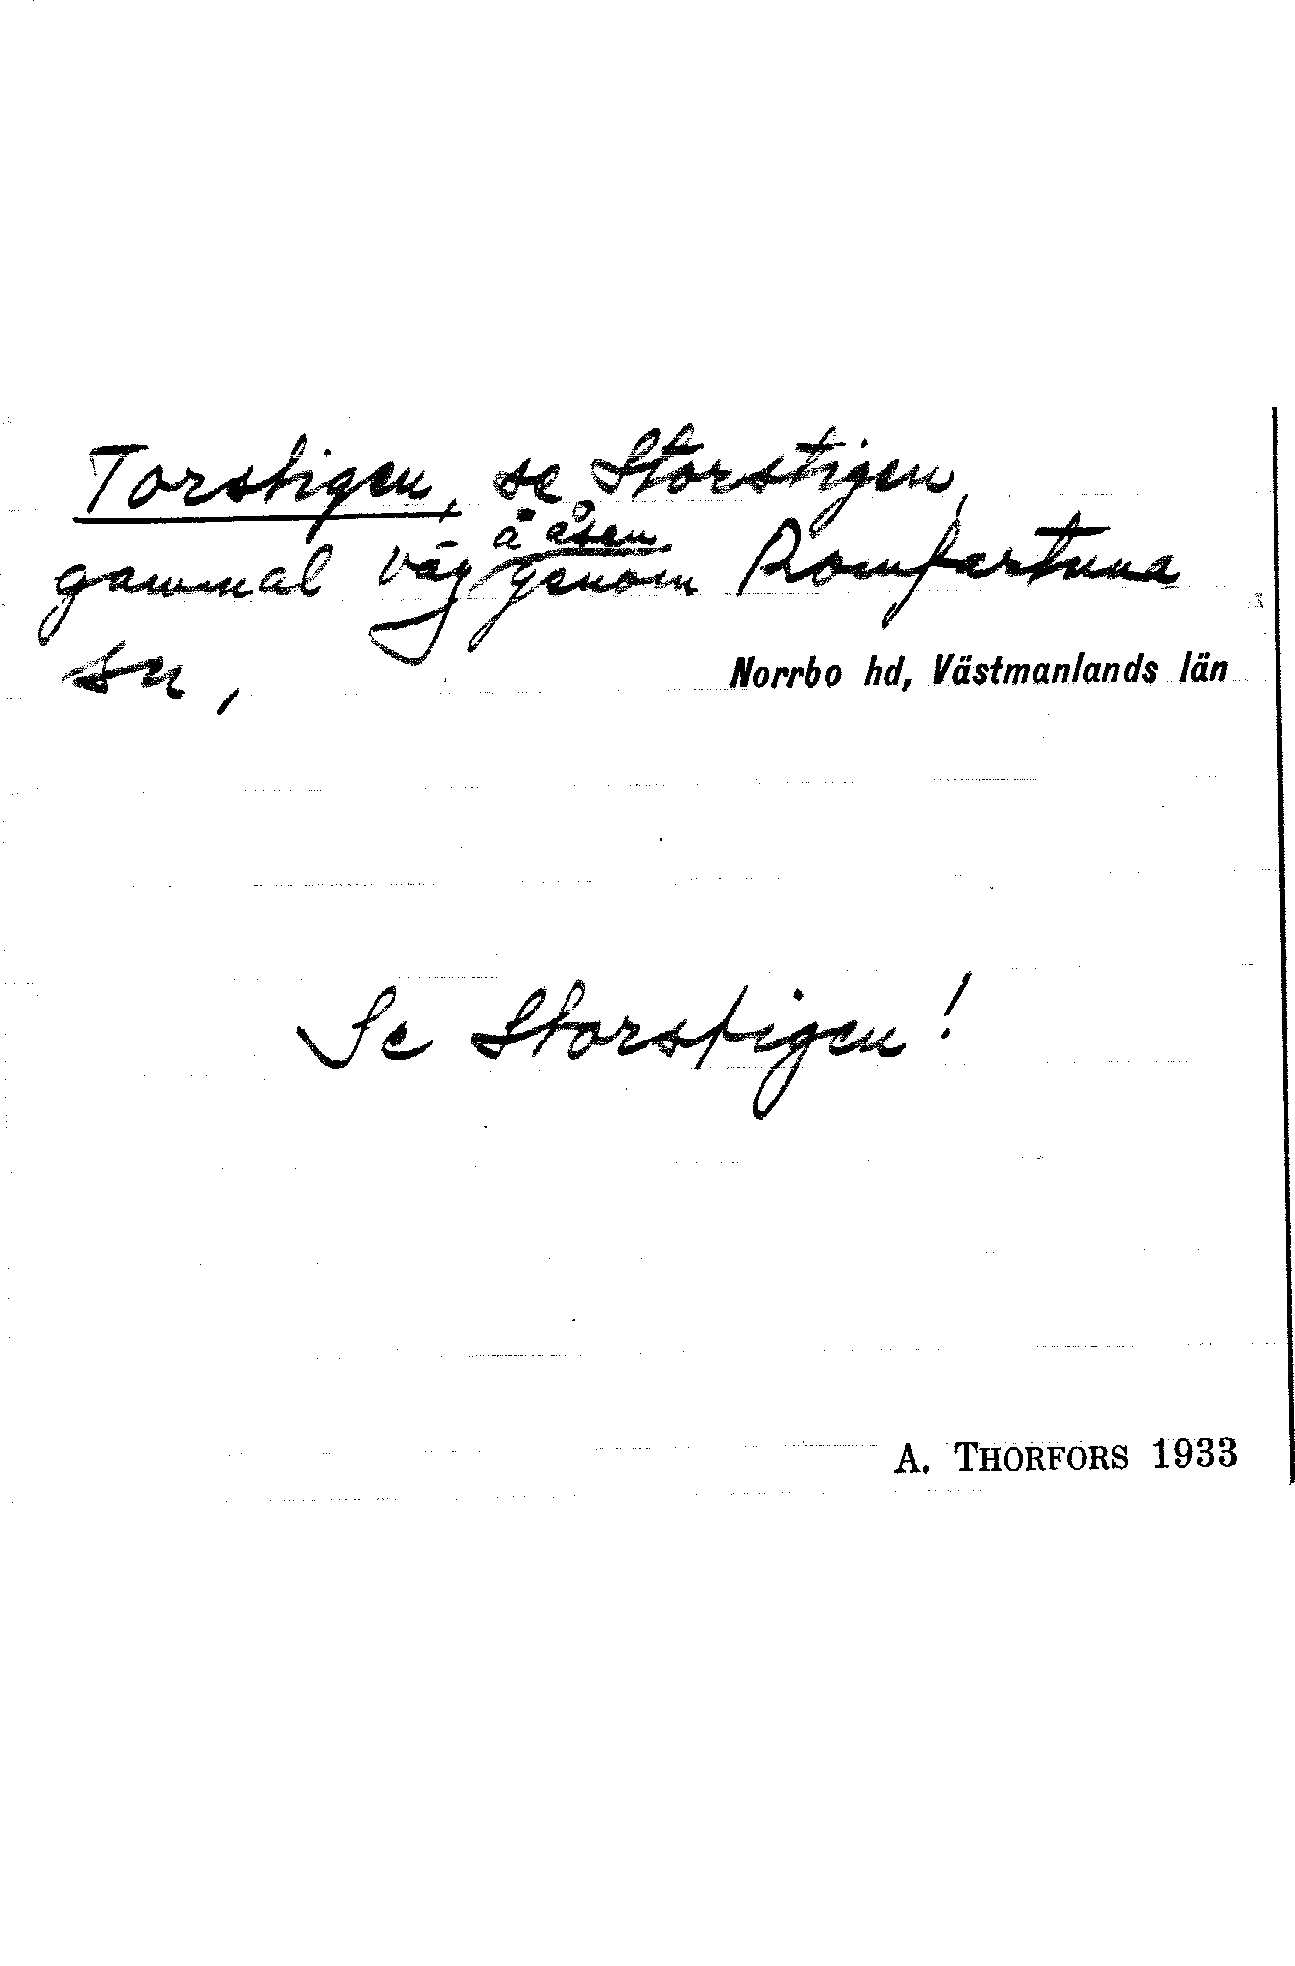 Torstigen, se Storstigen,
gammal väg å åsen genom Romfartuna
sn, Norrbo hd, Västmanlands län
Se Storstigen!
A. THORFORS 1933